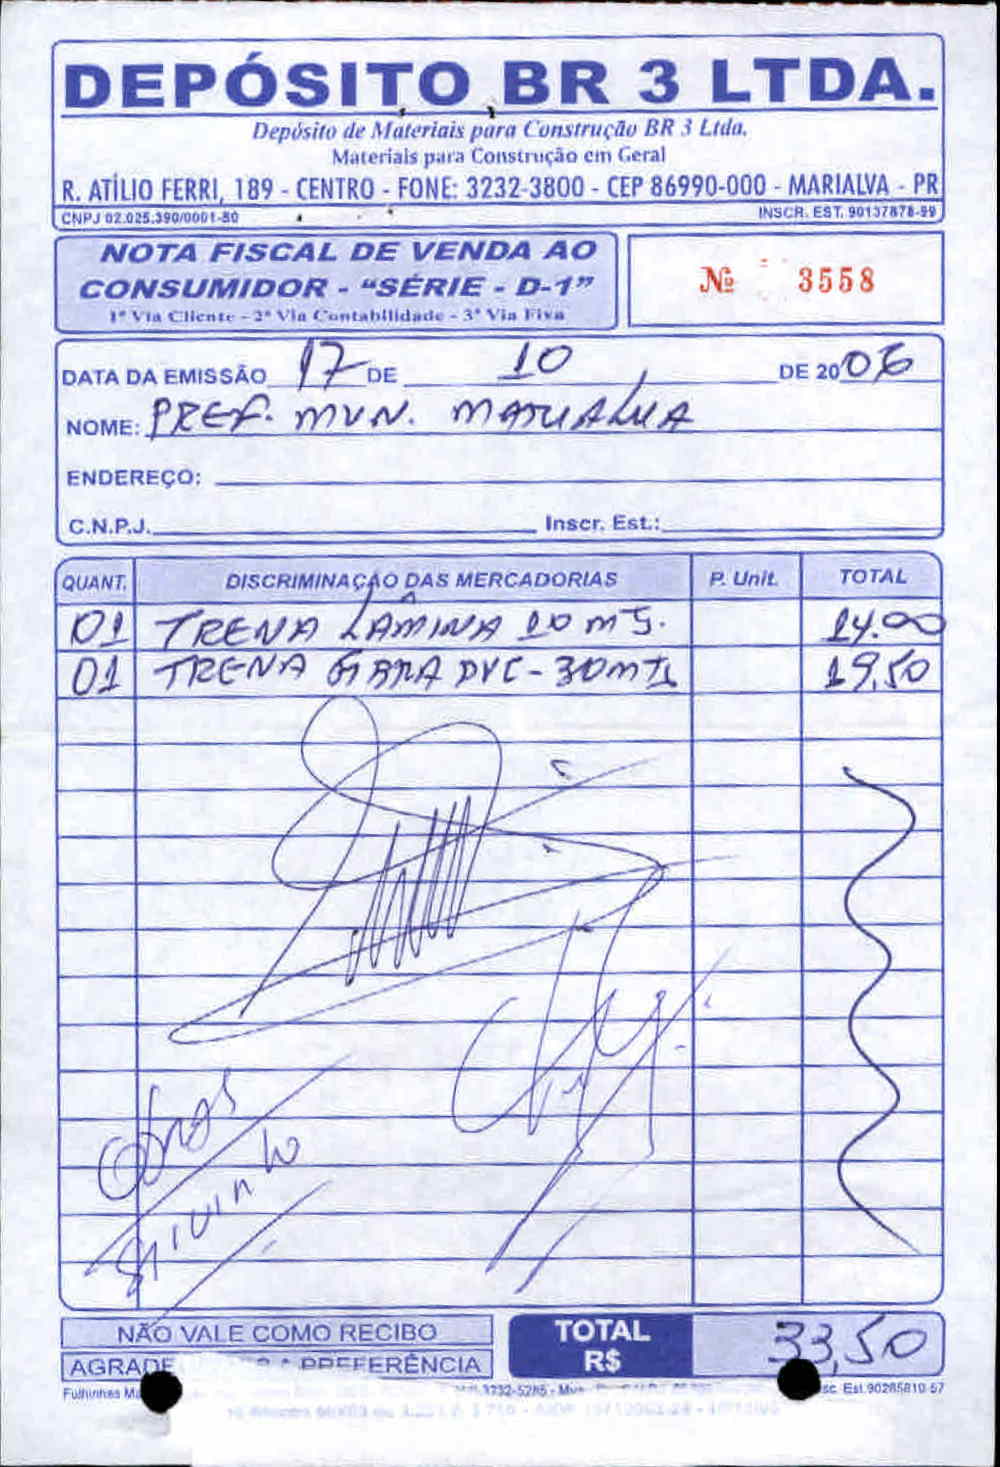 DEPÓSITO BR 3 LTDA.
Depósito de Materiais para Construção BR 3 Ltda.
Materiais para Construção em Geral
R. ATÍLIO FERRI, 189 - CENTRO - FONE: 3232-3800 - CEP 86990-000 - MARIALVA - PR
CNPJ 02.025.390/0001-80 INSCR. EST. 90137878-99
NOTA FISCAL DE VENDA AO
CONSUMIDOR - "SÉRIE - D-1"
1ª Via Cliente - 2ª Via Contabilidade - 3ª Via Fixa
Nº 3558
DATA DA EMISSÃO 17 DE 10 DE 2006
NOME: PREF. MUN. MARIALVA
ENDEREÇO:
C.N.P.J. Inscr. Est.:
QUANT. DISCRIMINAÇÃO DAS MERCADORIAS P. Unit. TOTAL
01 TRENA LÂMINA 10 MTS. 14.00
01 TRENA FIBRA PVC - 30 MTS 19,50
Obras
NÃO VALE COMO RECIBO
TOTAL R$ 33,50
PREFERÊNCIA
3232-5285
Est. 90285810-57